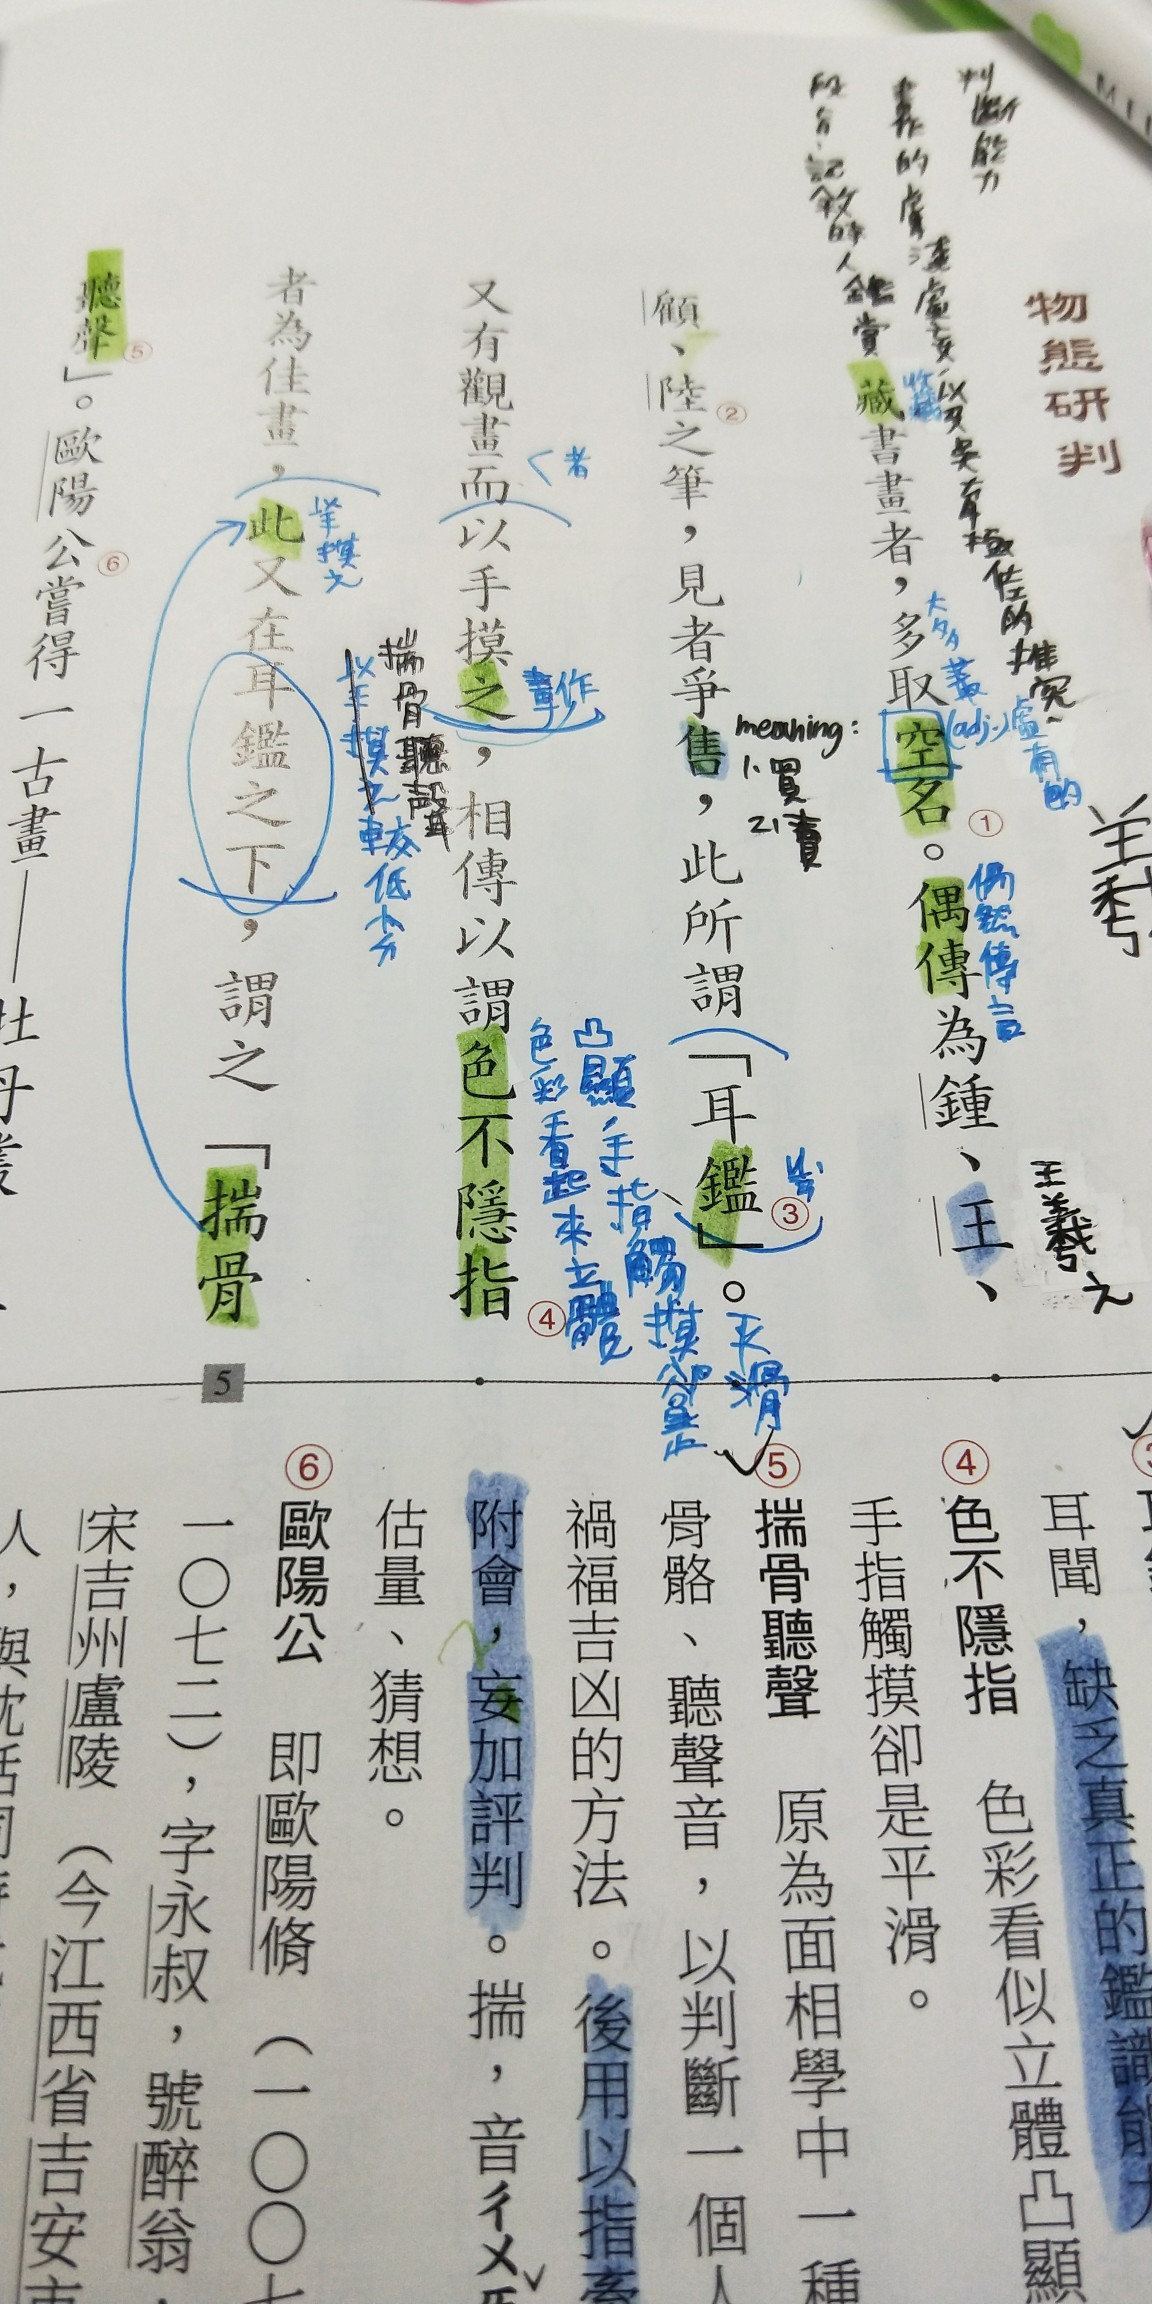 物態研判
判斷能力
書畫的
段旨：記敘時人鑑賞
藏書畫者，多取空名。偶傳為鍾、王、
收藏
大多
(adj.)虛有的
偶然傳言
王羲之
顧、陸之筆，見者爭售，此所謂「耳鑑」。
meaning:
1.買
2.賣
又有觀畫而以手摸之，相傳以謂色不隱指
者
畫作
色彩看起來立體
凸顯，手指觸摸卻是
平滑
者為佳畫，此又在耳鑑之下，謂之「揣骨
以手摸之
揣骨聽聲
以手摸之較低分
聽聲」。歐陽公嘗得一古畫——牡丹叢
①
②
③
④
⑤
⑥
5
耳聞，缺乏真正的鑑識能力
④色不隱指　色彩看似立體凸顯
手指觸摸卻是平滑。
⑤揣骨聽聲　原為面相學中一種
骨骼、聽聲音，以判斷一個人
禍福吉凶的方法。後用以指牽
附會，妄加評判。揣，音ㄔㄨㄞˇ
估量、猜想。
⑥歐陽公　即歐陽脩（一〇〇七
一〇七二），字永叔，號醉翁，
宋吉州廬陵（今江西省吉安市
人，與沈括同